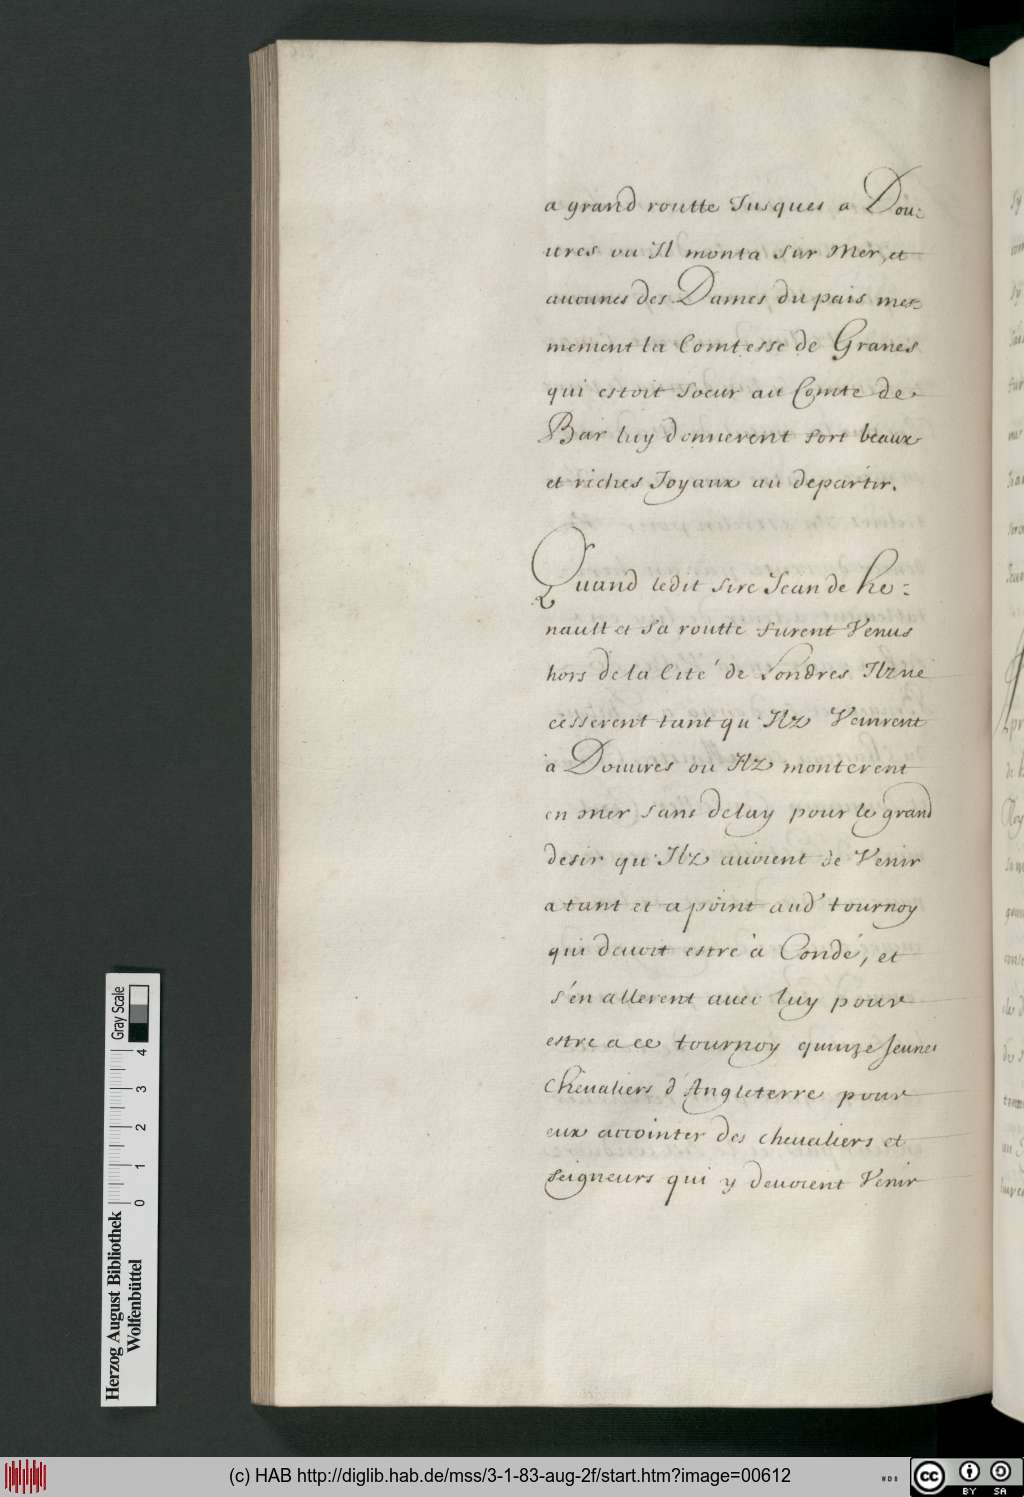 a grand routte Jusques a Dou=
ures ou Il monta sur Mer, et
aucunes des Dames du pais mes=
mement la Comtesse de Granes
qui estoit soeur au Comte de
Bar luy donnerent fort beaux
et riches Joyaux au departir.
Quand ledit sire Jean de he=
nault et sa routte furent Venus
hors de la Cité de Londres Ilz ne
cesserent tant qu'Ilz Veinrent
à Douures ou Ilz monterent
en mer sans delay pour le grand
desir qu'Ilz auoient de Venir
a tant et a point aud' tournoy
qui deuoit estre à Condé, et
s'en allerent auec luy pour
estre a ce tournoy quinze Jeunes
Cheualiers d'Angleterre pour
eux accointer des cheualiers et
seigneurs qui y deuoient Venir
Gray Scale
0 1 2 3 4
Herzog August Bibliothek
Wolfenbüttel
(c) HAB http://diglib.hab.de/mss/3-1-83-aug-2f/start.htm?image=00612
WDB
cc BY SA